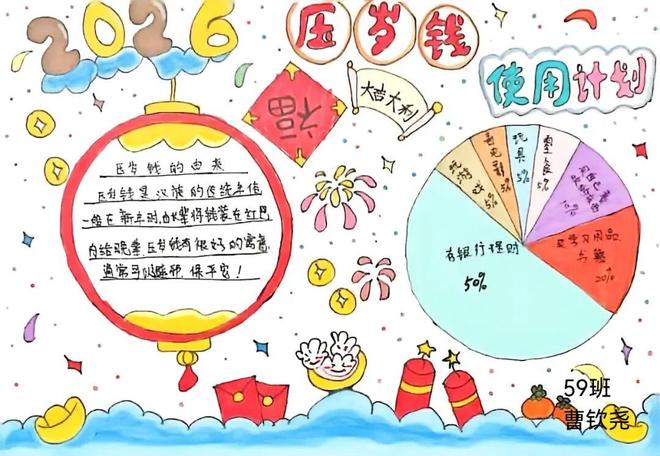 2026
压岁钱
使用计划
福
大吉大利
压岁钱的由来
压岁钱是汉族的传统年俗
一般在新年时,由长辈将钱装在红包
内给晚辈,压岁钱有很好的寓意
保平安!
玩游戏
5%
看电影
5%
玩具
5%
零食
5%
10%
买学习用品
与书籍
20%
存银行理财
50%
59班
曹钦尧